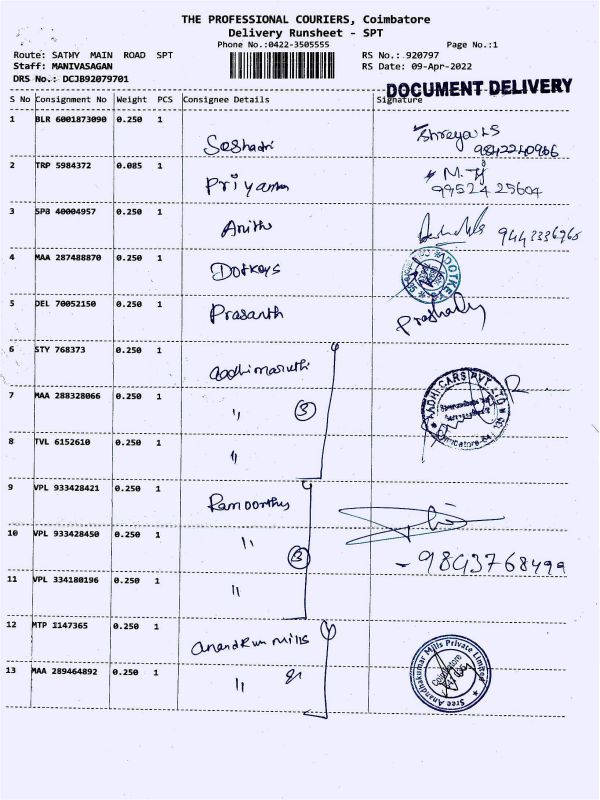 THE PROFESSIONAL COURIERS, Coimbatore
Delivery Runsheet - SPT
Phone No.:0422-3505555 Page No.:1
Route: SATMY MAIN ROAD SPT RS No.: 920797
Staff: MANIVASAGAN RS Date: 09-Apr-2022
DRS No.: DCJB92079701
DOCUMENT DELIVERY
S No Consignment No Weight PCS Consignee Details Signature
1 BLR 6001873090 0.250 1
Seshadri 9842240966
2 TRP 5984372 0.085 1
Priyanka 9952425604
3 SPB 40004957 0.250 1
Anitha 9443336968
4 MAA 287488870 0.250 1
Dotkeys DOTKEYS
5 DEL 70052150 0.250 1
Prasanth
6 STY 768373 0.250 1
Aadhi maruthi
7 MAA 288328066 0.250 1
" 3 AADHI CARS PVT. LTD
8 TVL 6152610 0.250 1
"
9 VPL 933428421 0.250 1
Ramoorthy
10 VPL 933428450 0.250 1
" 3 - 9843768499
11 VPL 334180196 0.250 1
"
12 MTP 1147365 0.250 1
Anandkum mills
13 MAA 289464892 0.250 1
" Sree Anandhakumar Mills Private Limited
Coimbatore